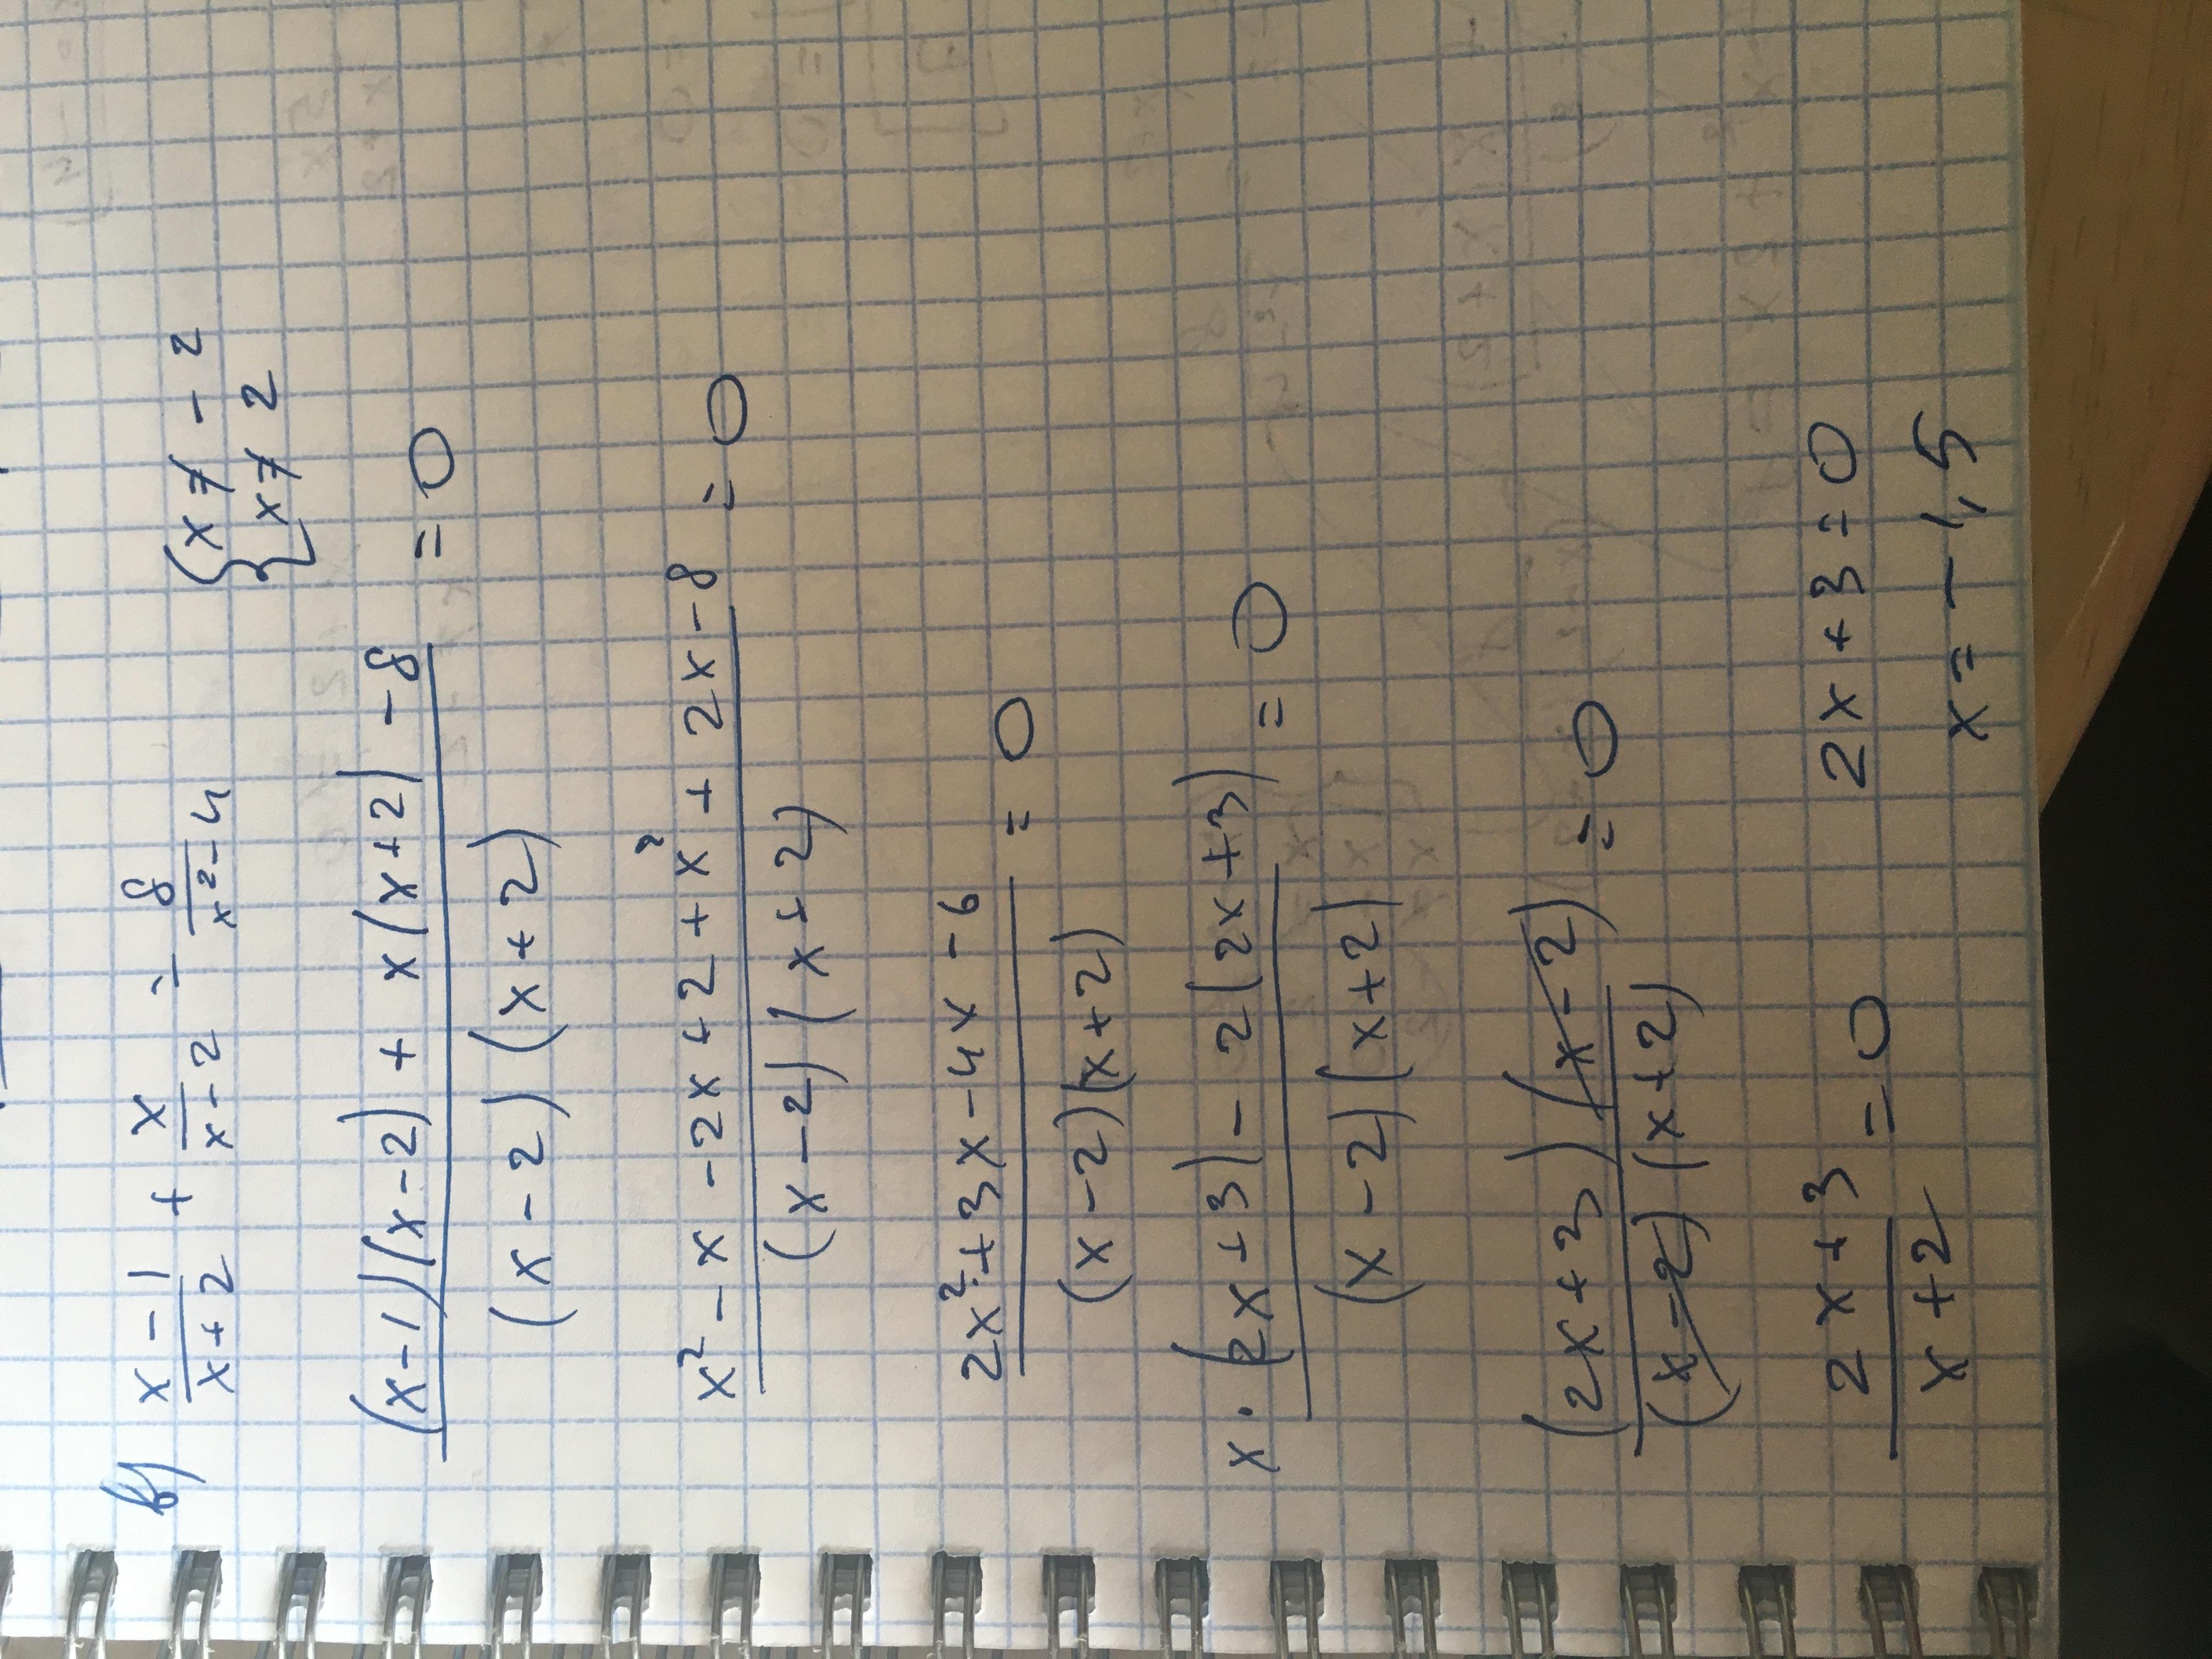 в) x-1/x+2 + x/x-2 - 8/x²-4 {x≠-2
{x≠2
(x-1)(x-2) + x(x+2) - 8 = 0
(x-2)(x+2)
x² - x - 2x + 2 + x² + 2x - 8 = 0
(x-2)(x+2)
2x² + 3x - 4x - 6 = 0
(x-2)(x+2)
x·(2x+3) - 2(2x+3) = 0
(x-2)(x+2)
(2x+3)(x-2) = 0
(x-2)(x+2)
2x+3 = 0 2x+3=0
x+2 x=-1,5